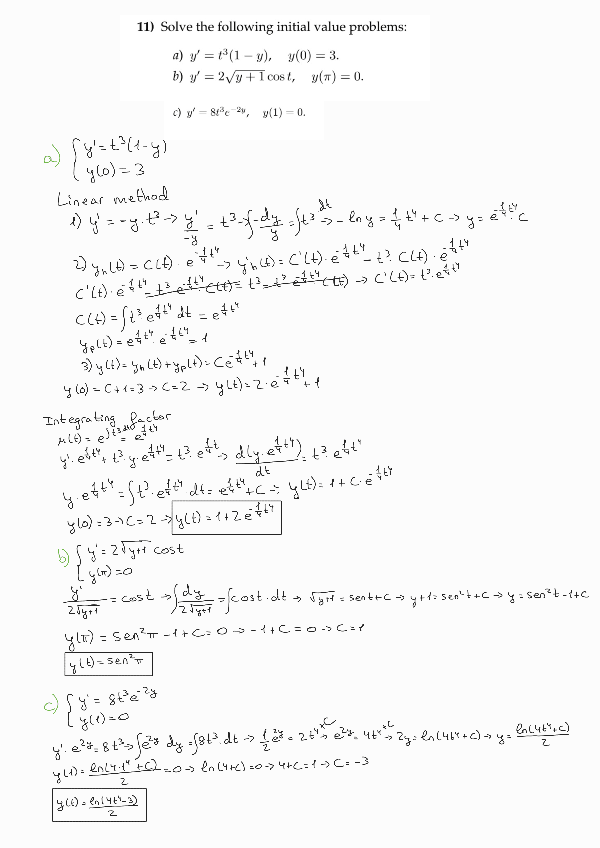 11) Solve the following initial value problems:
a) y′ = t³(1 − y), y(0) = 3.
b) y′ = 2√(y+1) cos t, y(π) = 0.
c) y′ = 8t³e^(−2y), y(1) = 0.
a) { y' = t³(1-y)
y(0) = 3
Linear method
1) y' = -y·t³ → y'/-y = t³ → ∫-dy/y = ∫t³ dt → -ln y = 1/4 t⁴ + C → y = e^(-1/4 t⁴)·C
2) y_h(t) = C(t)·e^(-1/4 t⁴) → y'_h(t) = C'(t)·e^(-1/4 t⁴) - t³ C(t)·e^(-1/4 t⁴)
C'(t)·e^(-1/4 t⁴) - t³ e^(-1/4 t⁴) C(t) = t³ - t³ e^(-1/4 t⁴) C(t) → C'(t) = t³·e^(1/4 t⁴)
C(t) = ∫t³ e^(1/4 t⁴) dt = e^(1/4 t⁴)
y_p(t) = e^(1/4 t⁴)·e^(-1/4 t⁴) = 1
3) y(t) = y_h(t) + y_p(t) = Ce^(-1/4 t⁴) + 1
y(0) = C+1 = 3 → C = 2 → y(t) = 2·e^(-1/4 t⁴) + 1
Integrating factor
μ(t) = e^(∫t³dt) = e^(1/4 t⁴)
y'·e^(1/4 t⁴) + t³·y·e^(1/4 t⁴) = t³·e^(1/4 t) → d(y·e^(1/4 t⁴))/dt = t³·e^(1/4 t⁴)
y·e^(1/4 t⁴) = ∫t³·e^(1/4 t⁴) dt = e^(1/4 t⁴) + C → y(t) = 1 + C·e^(-1/4 t⁴)
y(0) = 3 → C = 2 → y(t) = 1 + 2e^(-1/4 t⁴)
b) { y' = 2√(y+1) cos t
y(π) = 0
y'/2√(y+1) = cos t → ∫dy/2√(y+1) = ∫cos t·dt → √(y+1) = sen t + C → y+1 = sen² t + C → y = sen² t - 1 + C
y(π) = sen² π - 1 + C = 0 → -1 + C = 0 → C = 1
y(t) = sen² π
c) { y' = 8t³e^(-2y)
y(1) = 0
y'·e^(2y) = 8t³ → ∫e^(2y) dy = ∫8t³·dt → 1/2 e^(2y) = 2t⁴ + C → e^(2y) = 4t⁴ + C → 2y = ln(4t⁴+C) → y = ln(4t⁴+C)/2
y(1) = ln(4·1⁴+C)/2 = 0 → ln(4+C) = 0 → 4+C = 1 → C = -3
y(t) = ln(4t⁴-3)/2